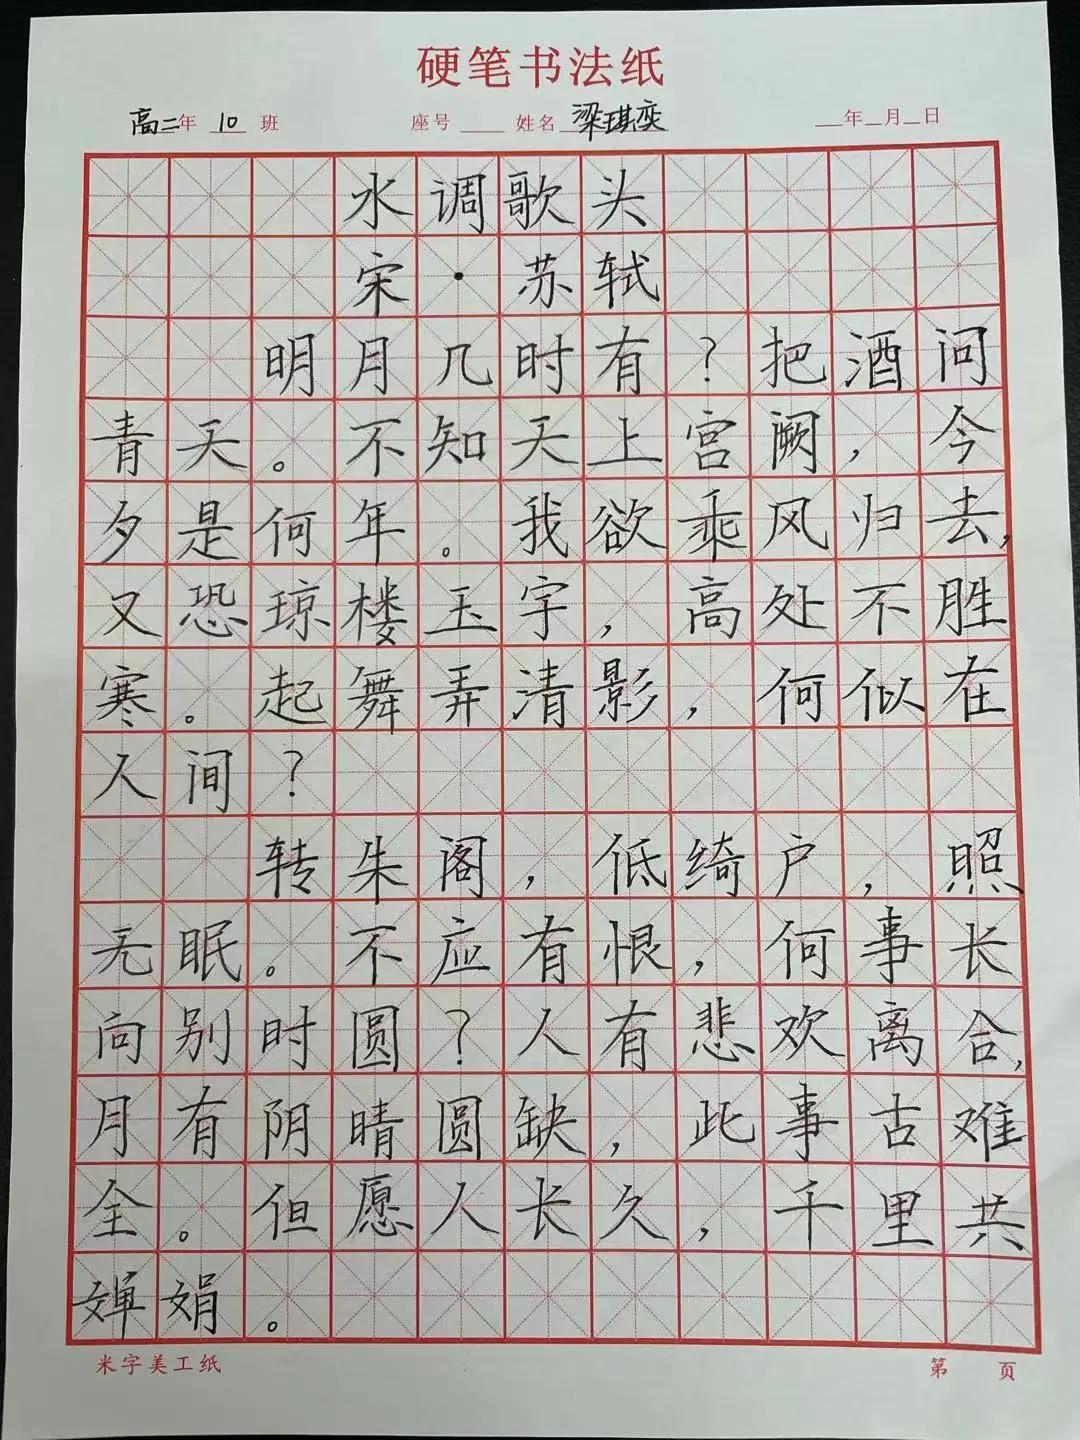 硬笔书法纸
高二年 10 班 座号 姓名 梁琪奕 年 月 日
水调歌头
宋·苏轼
明月几时有?把酒问
青天。不知天上宫阙,今
夕是何年。我欲乘风归去,
又恐琼楼玉宇,高处不胜
寒。起舞弄清影,何似在
人间?
转朱阁,低绮户,照
无眠。不应有恨,何事长
向别时圆?人有悲欢离合,
月有阴晴圆缺,此事古难
全。但愿人长久,千里共
婵娟。
米字美工纸 第 页